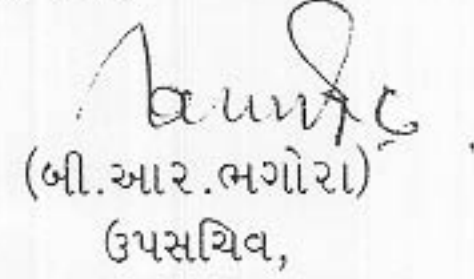 (બી.આર.ભગોરા)
ઉપસચિવ,